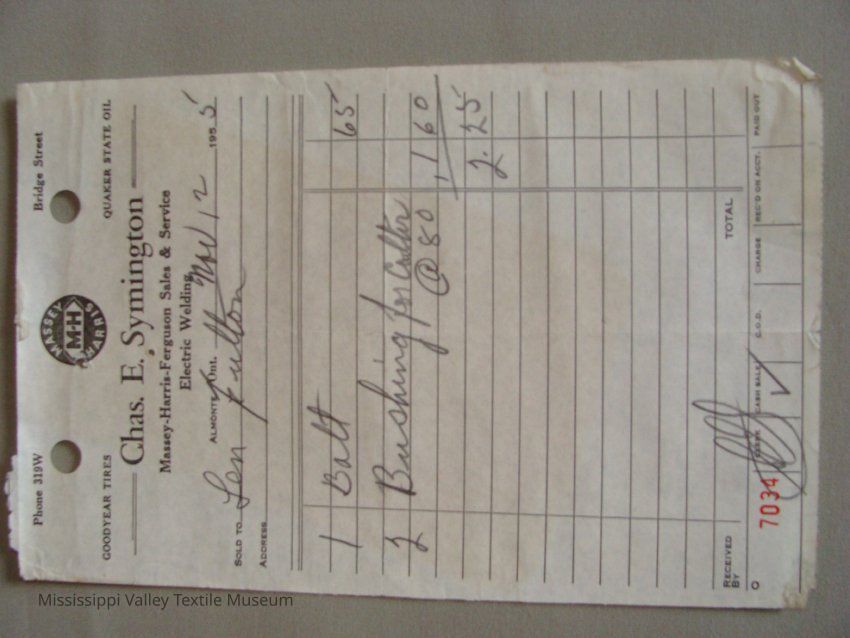 Phone 319W Bridge Street
MASSEY
M-H
HARRIS
GOODYEAR TIRES QUAKER STATE OIL
Chas. E. Symington
Massey-Harris-Ferguson Sales & Service
Electric Welding
ALMONTE, Ont. Nov 12 1955
SOLD TO Len Fulton
ADDRESS
1 Bolt 65
2 Bushing for Coulter
@ 80 1 60
2.25
TOTAL
RECEIVED
BY
7034 CLERK CASH SALE C.O.D. CHARGE REC'D ON ACCT. PAID OUT
Mississippi Valley Textile Museum